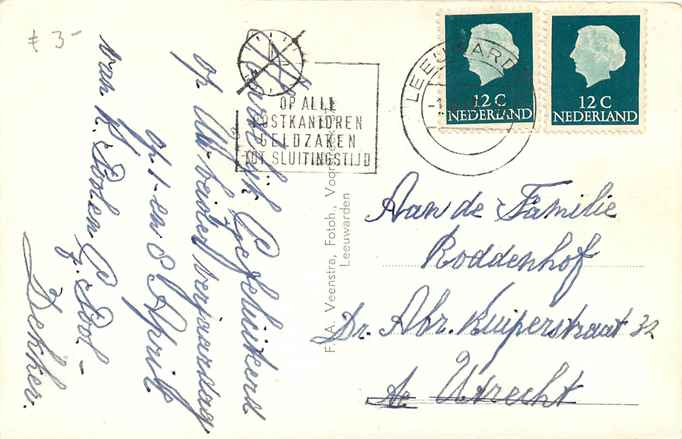 £ 3-
LEEUWARD
OP ALLE
POSTKANTOREN
GELDZAKEN
TOT SLUITINGSTIJD
12 C
NEDERLAND
12 C
NEDERLAND
Hartelijk Gefeliciteerd
op Uw beider verjaardag
op 1- en 8 April
van K. Stolen G. Stool-
Dekker.
F A. Veenstra, Fotoh., Voor
Leeuwarden
Aan de Familie
Roddenhof
Dr. Abr. Kuiperstraat 32
te Utrecht